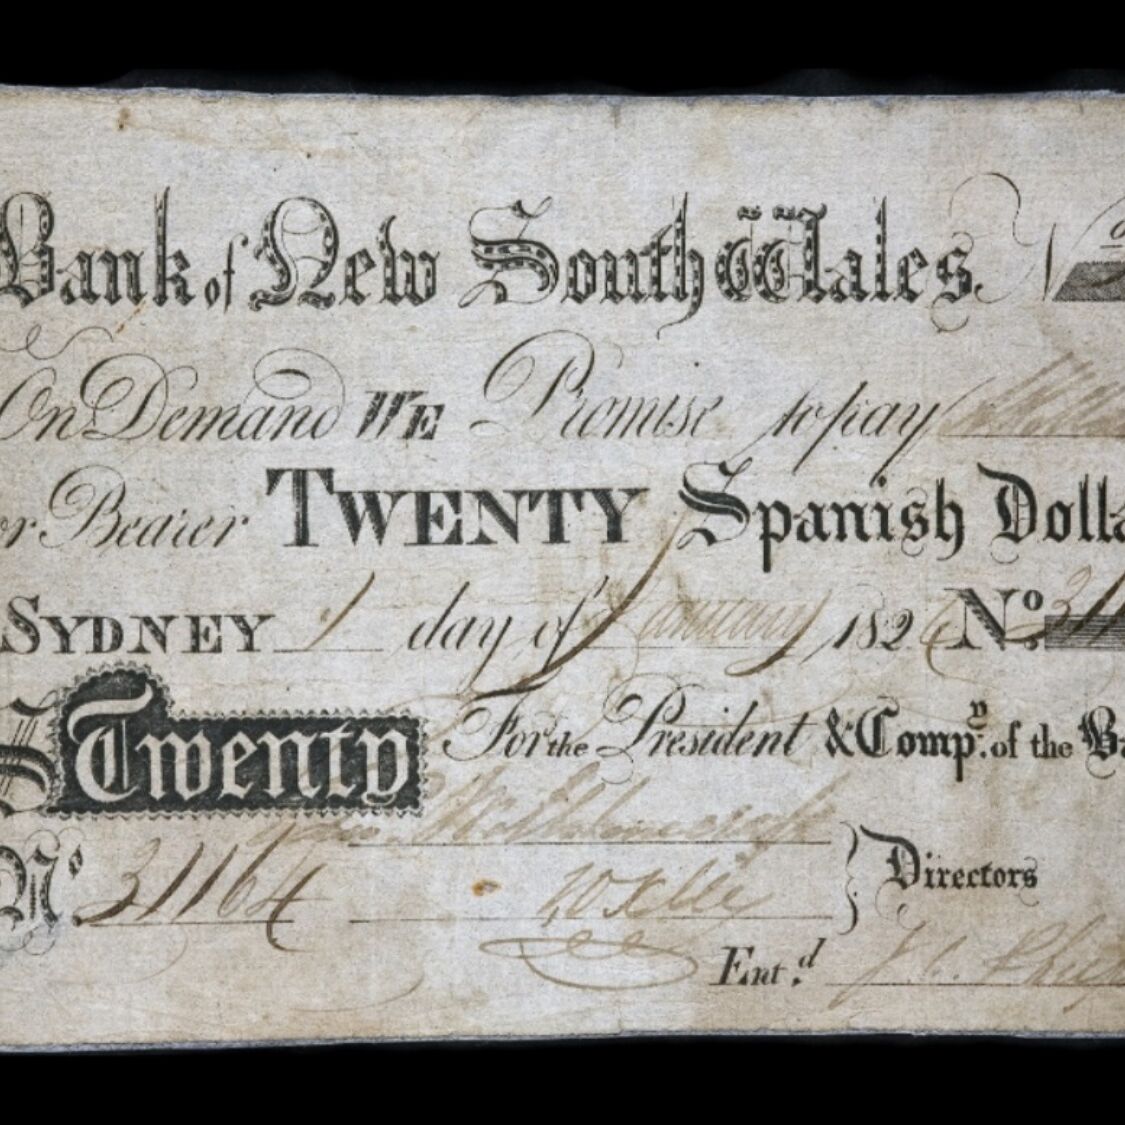 Bank of New South Wales. No
On Demand WE Promise to pay
or Bearer TWENTY Spanish Dolla
SYDNEY 1 day of January 1826 No. 311
Twenty For the President & Compy. of the Ba
No. 31164
Directors
Ent.d